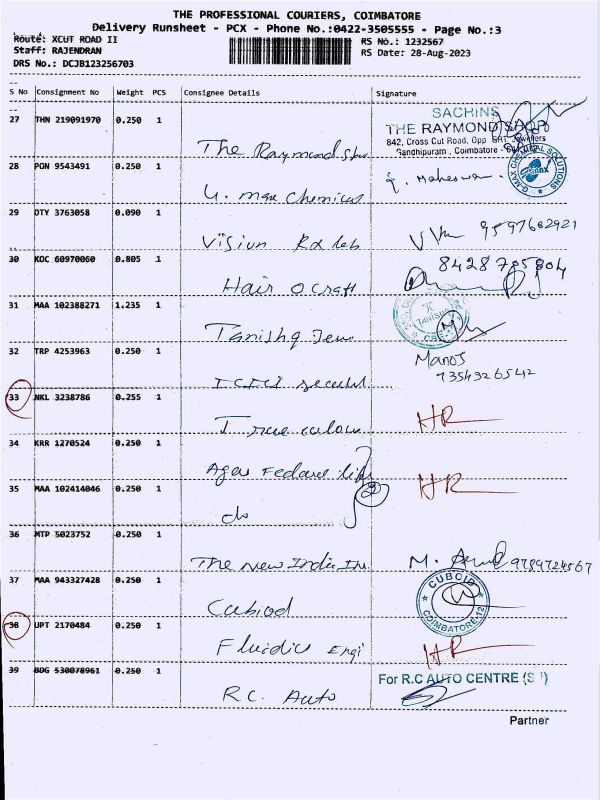 THE PROFESSIONAL COURIERS, COIMBATORE
Delivery Runsheet - PCX - Phone No.:0422-3505555 - Page No.:3
Route: XCUT ROAD II
RS No.: 1232567
Staff: RAJENDRAN
RS Date: 28-Aug-2023
DRS No.: DCJB123256703
S No Consignment No Weight PCS Consignee Details Signature
27 THN 219091970 0.250 1 The Raymond
SACHINS
THE RAYMOND SHOP
842, Cross Cut Road, Opp GRT Jewellers
Gandhipuram, Coimbatore -
28 PON 9543491 0.250 1 G. max Chemical
Maheswar
G-MAX CHEMICAL SOLUTIONS
29 DTY 3763058 0.090 1 Vision Rx lab
9597602921
30 KOC 60970060 0.805 1 Hair O Craft
31 MAA 102388271 1.235 1 Tanishq Jew
TANISHQ
CBE
32 TRP 4253963 0.250 1 ICICI
Manoj
7354326542
33 NKL 3238786 0.255 1 True
HR
34 KRR 1270524 0.250 1 Agas Federal life
35 MAA 102414046 0.250 1 do
2
HR
36 MTP 5023752 0.250 1 The New India In
M.
9789724567
37 MAA 943327428 0.250 1 Cubiod
CUBOID
COIMBATORE-12
38 UPT 2170484 0.250 1 Fluidic Engi
HR
39 BDG 530078961 0.250 1 R.C. Auto
For R.C AUTO CENTRE
Partner